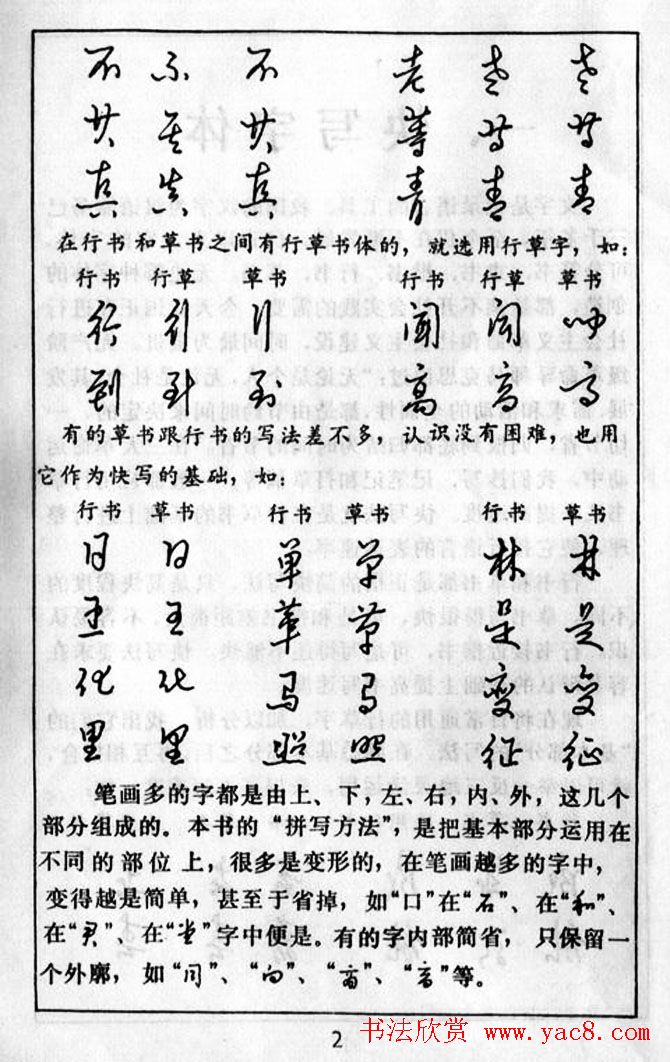 不 不 不 老 老 老
共 其 共 等 等 等
真 真 真 青 青 青
在行书和草书之间有行草书体的，就选用行草字，如：
行书 行草 草书 行书 行草 草书
行 行 行 闻 闻 闻
到 到 到 高 高 高
有的草书跟行书的写法差不多，认识没有困难，也用
它作为快写的基础，如：
行书 草书 行书 草书 行书 草书
日 日 单 单 林 林
王 王 草 草 是 是
化 化 马 马 变 变
里 里 照 照 征 征
笔画多的字都是由上、下，左、右，内、外，这几个
部分组成的。本书的“拼写方法”，是把基本部分运用在
不同的部位上，很多是变形的，在笔画越多的字中，
变得越是简单，甚至于省掉，如“口”在“石”、在“和”、
在“君”、在“堂”字中便是。有的字内部简省，只保留一
个外廓，如“同”、“向”、“”、“”等。
2
书法欣赏 www.yac8.com